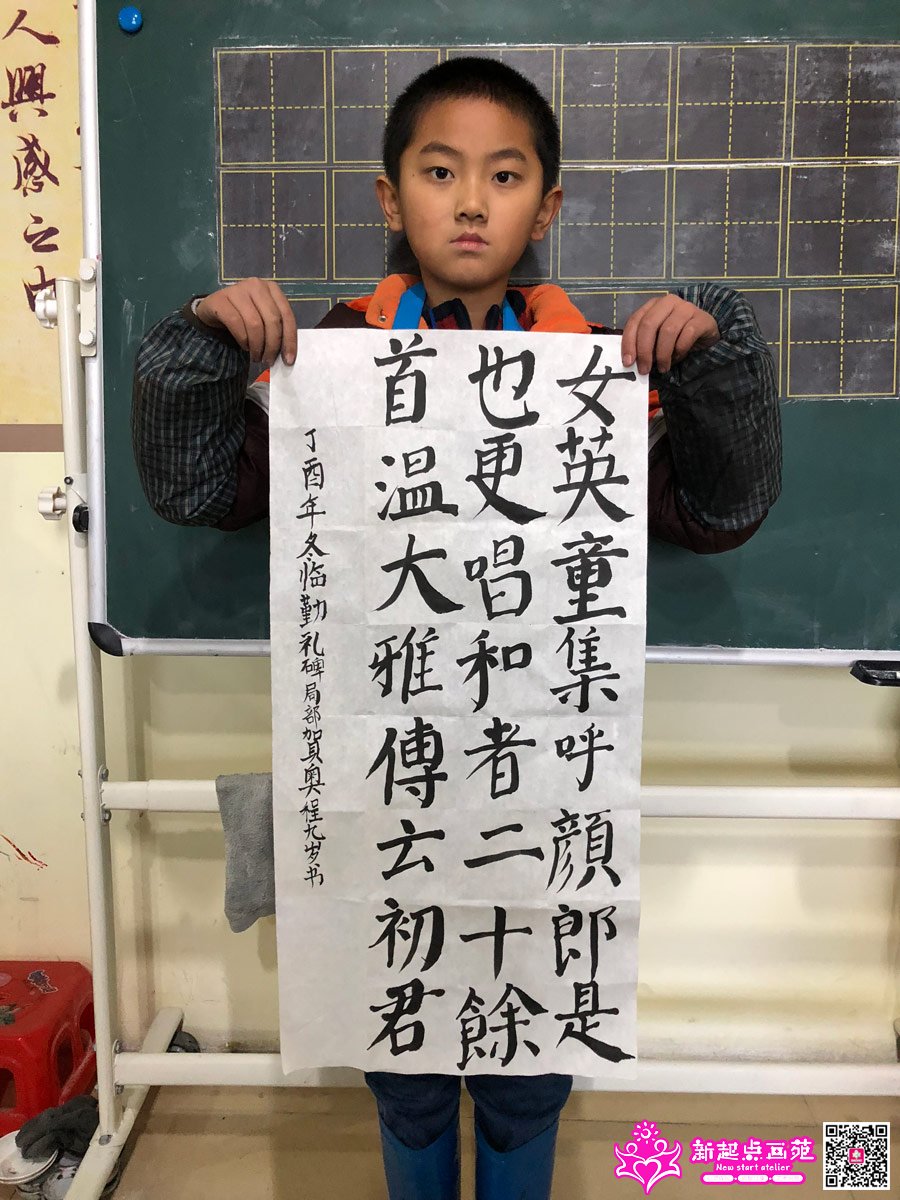 女英童集呼顔郎是
也更唱和者二十餘
首温大雅傳云初君
丁酉年冬临勤礼碑局部贺奥程九岁书
人興感之由
新起点画苑
New start atelier